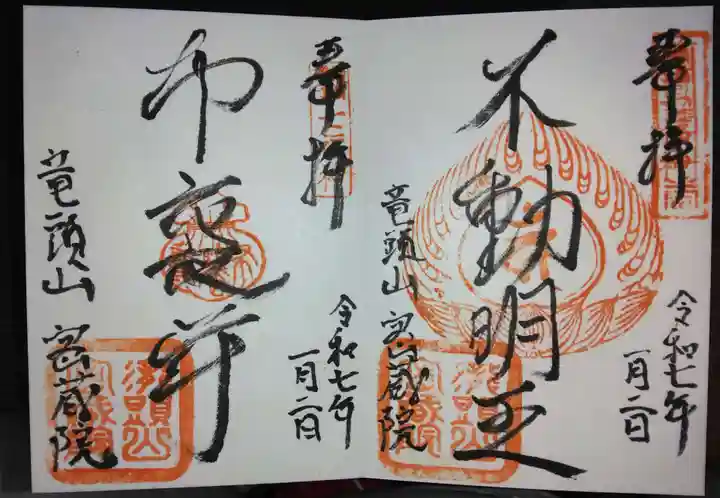 奉拝
令和七年
一月二日
不動明王
竜頭山 密蔵院
奉拝
令和七年
一月二日
布袋尊
竜頭山 密蔵院